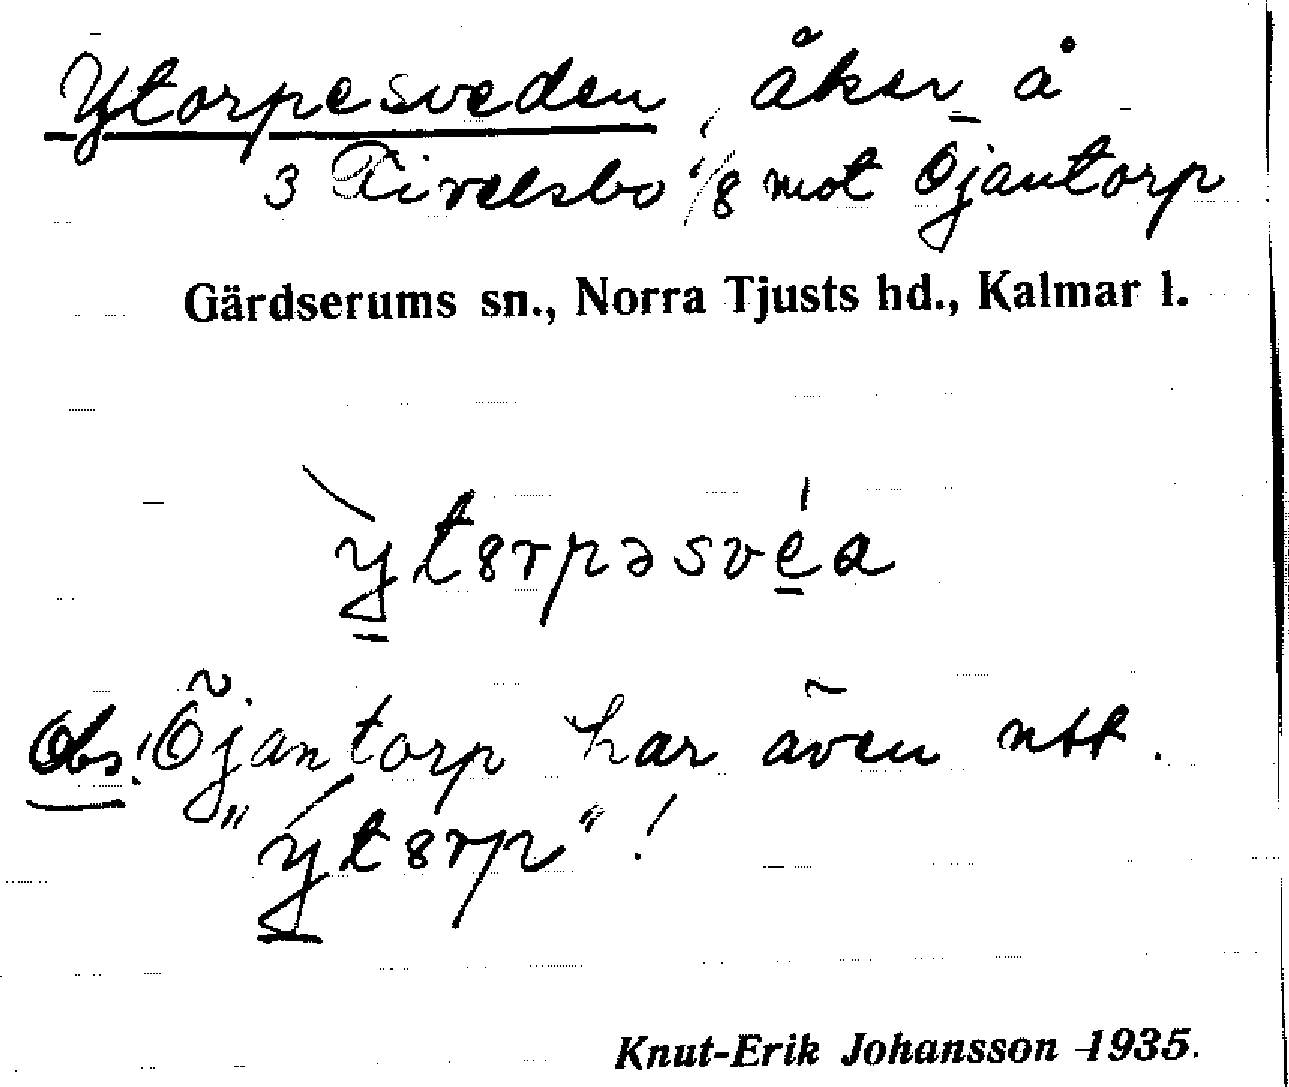 Ytorpesveden, åker å
3 Tivelsbo 1/8 mot Öjantorp
Gärdserums sn., Norra Tjusts hd., Kalmar l.
ỳt8rpəsvéa
Obs! Öjantorp har även utt.
"ýt8rp"!
Knut-Erik Johansson 1935.